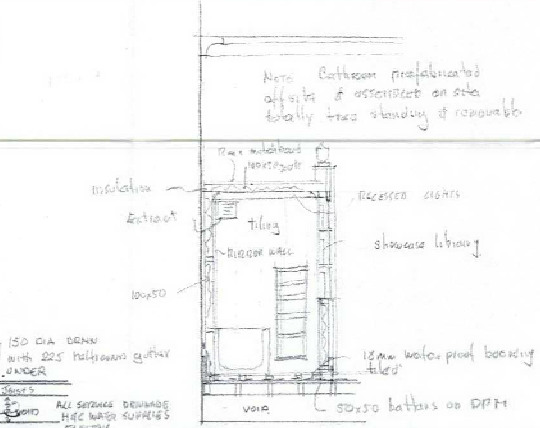 Note Bathroom prefabricated
offsite & assembled on site
totally free standing & removable
Insulation
RECESSED LIGHTS
Extract
tiling
MIRROR WALL
showcase
100x50
150 DIA DRAIN
with 225 gutter
UNDER
18mm water proof boarding
tiled
JOISTS
ALL SERVICE DRAINAGE
H&C WATER SUPPLIES
VOID
50x50 battens on DPM